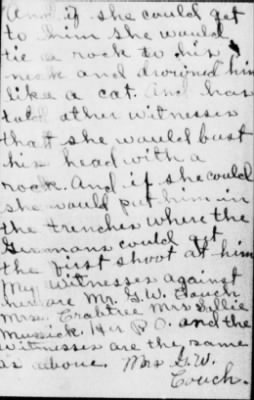 And if she could get
to him she would
tie a rock to his
neck and drowned him
like a cat. And has
told other witnesses
that she would bust
his head with a
rock. And if she could
she would put him in
the trenches where the
Germans could get
the first shoot at him
My witnesses against
her are Mr. G.W. Couch.
Mrs. Crabtree Mrs Sillie
Musick. Her P O. and the
witnesses are the same
as above. Mrs. G.W.
Couch.